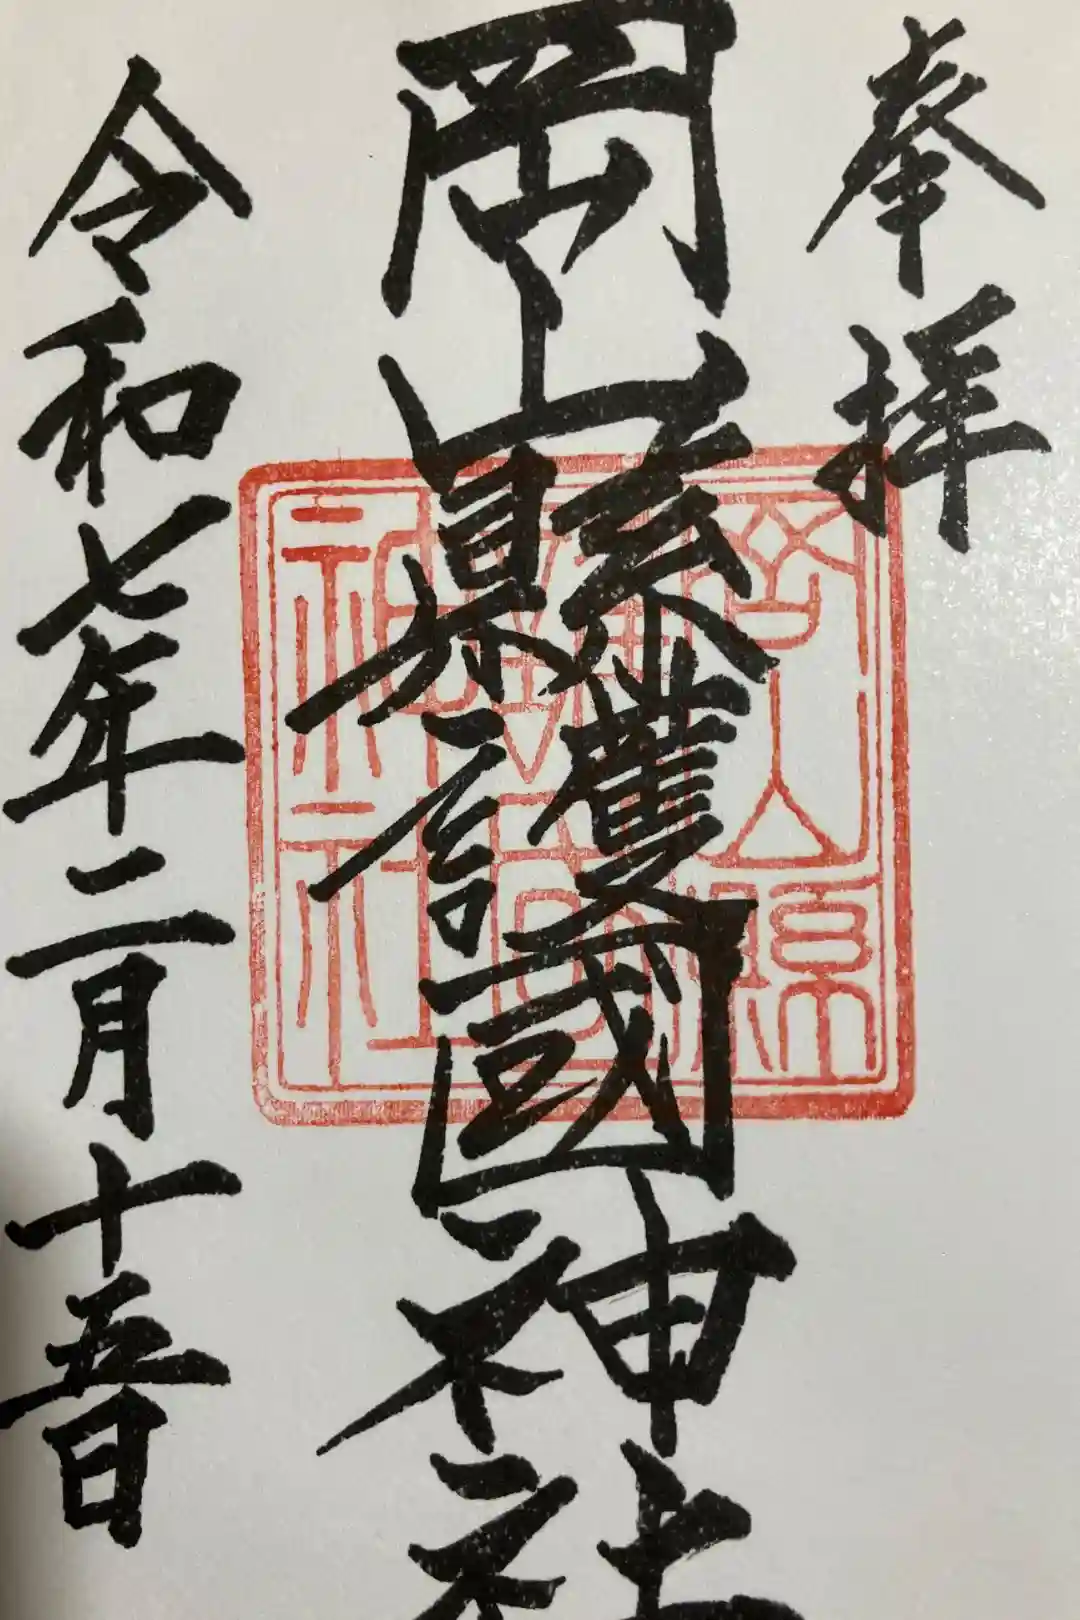 奉拝
岡山縣護國神社
岡山縣護國神社
令和七年二月十五日